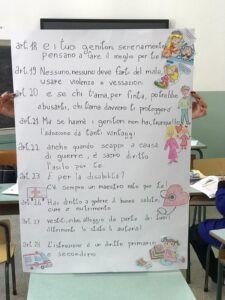 art. 18 e i tuoi genitori serenamente
pensano a fare il meglio per te
art. 19 Nessuno, nessuno deve farti del male,
usare violenza o vessazioni
art. 20 e se chi t'ama, per finta, potrebbe
abusarti, chi t'ama davvero ti proteggerà
art. 21 Ma se hai genitori non hai, tranquillo
l'adozione dà tanti vantaggi
art. 22 anche quando scappi a causa
di guerre, è sacro diritto
l'asilo per te
art. 23 E per la disabilità?
C'è sempre un maestro per te!
art. 24 Hai diritto a godere di buona salute,
cure e nutrimento
art. 27 vestiti, cibo, alloggio da parte di tuoi
altrimenti lo stato ti aiuterà!
art. 28 L'istruzione è un diritto primario
e secondario